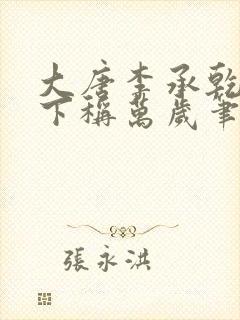 大唐李承乾
下稱萬歲筆
張永洪